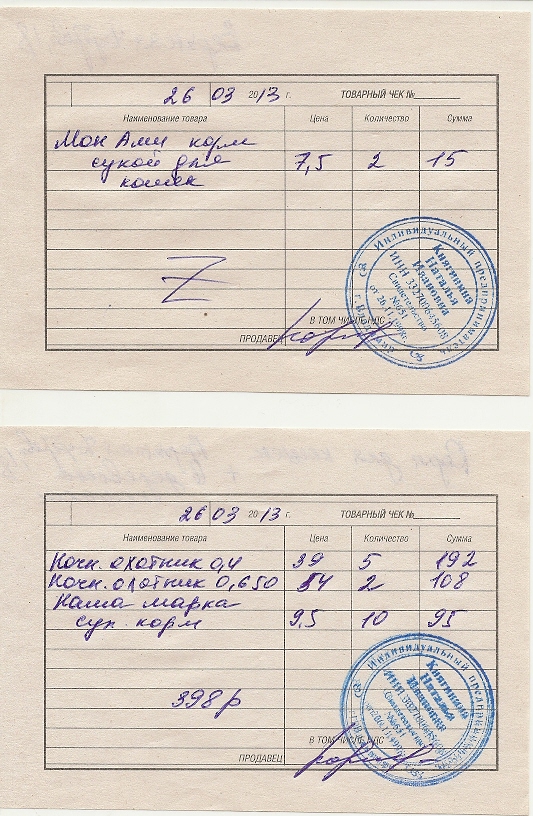 26 03 2013 г. ТОВАРНЫЙ ЧЕК №
Наименование товара Цена Количество Сумма
Мон Ами корм
сухой для 7,5 2 15
кошек
Z
В ТОМ ЧИСЛЕ НДС
ПРОДАВЕЦ
Индивидуальный предприниматель
Княгинина
Наталья
Ивановна
ИНН
Свидетельство
№6051
26 03 2013 г. ТОВАРНЫЙ ЧЕК №
Наименование товара Цена Количество Сумма
Ночн. охотник 0,4 39 5 192
Ночн. охотник 0,650 54 2 108
Наша марка
сух. корм 9,5 10 95
398 р
В ТОМ ЧИСЛЕ НДС
ПРОДАВЕЦ
Индивидуальный предприниматель
Княгинина
Наталья
Ивановна
ИНН
Свидетельство
№6051